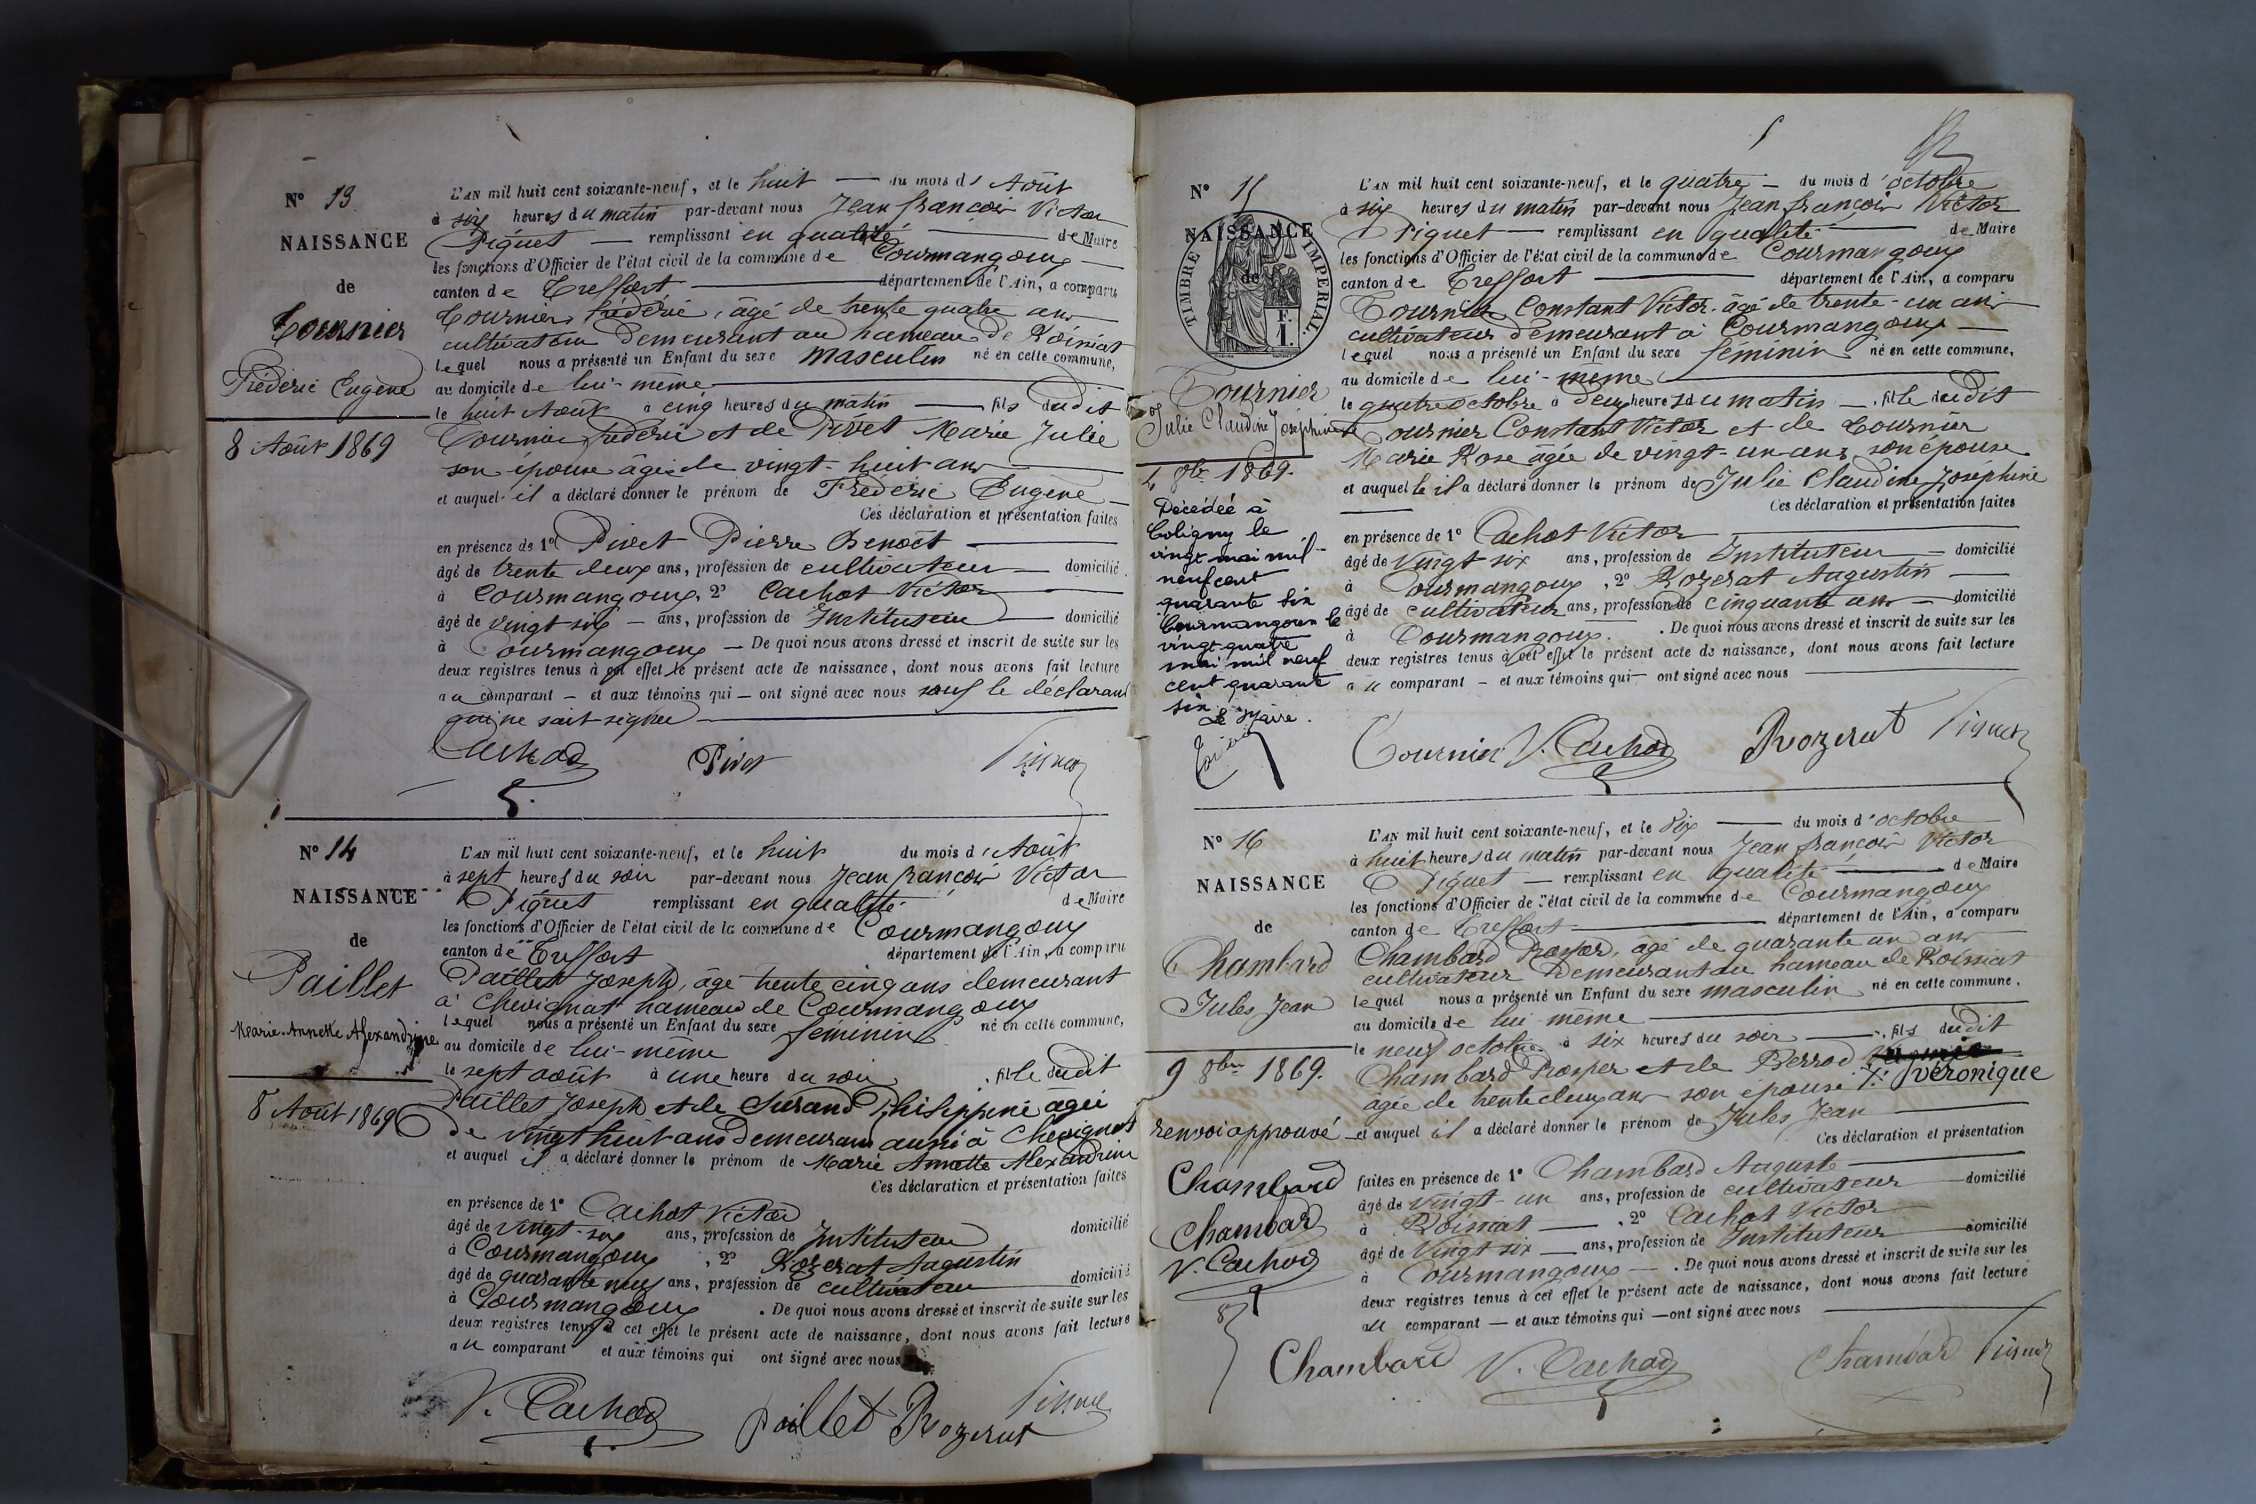 N° 13
NAISSANCE
de
Tournier
Frédéric Eugène
8 Août 1869
L'AN mil huit cent soixante-neuf, et le huit — du mois d'Août
à six heures du matin par-devant nous Jean françois Victor
Piquet — remplissant en qualité — de Maire
les fonctions d'Officier de l'état civil de la commune de Courmangoux —
canton de Treffort — département de l'Ain, a comparu
Tournier frédéric, âgé de trente quatre ans
cultivateur demeurant au hameau de Roissiat
lequel nous a présenté un Enfant du sexe masculin né en cette commune,
au domicile de lui-même —
le huit Août à cinq heures du matin — fils dudit
Tournier frédéric et de Pivet Marie Julie
son épouse âgée de vingt-huit ans —
et auquel il a déclaré donner le prénom de Frédéric Eugène —
Ces déclaration et présentation faites
en présence de 1° Pivet Pierre Benoît —
âgé de trente deux ans, profession de cultivateur — domicilié
à Courmangoux, 2° Cachod Victor —
âgé de vingt six — ans, profession de Instituteur — domicilié
à Courmangoux — De quoi nous avons dressé et inscrit de suite sur les
deux registres tenus à cet effet le présent acte de naissance, dont nous avons fait lecture
au comparant — et aux témoins qui — ont signé avec nous sauf le déclarant
qui ne sait signer —
Cachod Pivet Piquet
N° 14
NAISSANCE
de
Paillet
Marie Annette Alexandrine
8 Août 1869
L'AN mil huit cent soixante-neuf, et le huit du mois d'Août
à sept heures du soir par-devant nous Jean françois Victor
Piquet remplissant en qualité de Maire
les fonctions d'Officier de l'état civil de la commune de Courmangoux
canton de Treffort département de l'Ain, a comparu
Paillet Joseph, âgé trente cinq ans demeurant
à Chevignat hameau de Courmangoux
lequel nous a présenté un Enfant du sexe feminin né en cette commune,
au domicile de lui-même
le sept août à une heure du soir, fille dudit
Paillet Joseph et de Surand Philippine agée
de vingt huit ans demeurant aussi à Chevignat
et auquel il a déclaré donner le prénom de Marie Annette Alexandrine
Ces déclaration et présentation faites
en présence de 1° Cachod Victor
âgé de vingt-six ans, profession de Instituteur domicilié
à Courmangoux, 2° Rozerat Augustin
âgé de quarante neuf ans, profession de cultivateur domicilié
à Courmangoux. De quoi nous avons dressé et inscrit de suite sur les
deux registres tenus à cet effet le présent acte de naissance, dont nous avons fait lecture
au comparant et aux témoins qui ont signé avec nous
V. Cachod Paillet Rozerat Piquet
N° 15
NAISSANCE
de
TIMBRE IMPERIAL.
F.
1.
Tournier
Julie Claudine Joséphine
4 8bre 1869.
Décédée à
Coligny le
vingt mai mil
neuf cent
quarante six
Courmangoux le
vingt-quatre
mai mil neuf
cent quarante
six
Le Maire.
L'AN mil huit cent soixante-neuf, et le quatre — du mois d'octobre
à six heures du matin par-devant nous Jean françois Victor
Piquet — remplissant en qualité — de Maire
les fonctions d'Officier de l'état civil de la commune de Courmangoux
canton de Treffort — département de l'Ain, a comparu
Tournier Constant Victor, âgé de trente-un ans
cultivateur demeurant à Courmangoux —
lequel nous a présenté un Enfant du sexe féminin né en cette commune,
au domicile de lui-même —
le quatre octobre à deux heures du matin —, fille dudit
Tournier Constant Victor et de Tournier
Marie Rose âgée de vingt-un ans son épouse
et auquelle il a déclaré donner le prénom de Julie Claudine Joséphine
— Ces déclaration et présentation faites
en présence de 1° Cachot Victor —
âgé de vingt six ans, profession de Instituteur — domicilié
à Courmangoux, 2° Rozerat Augustin —
âgé de cultivateur ans, profession de cinquante ans — domicilié
à Courmangoux. De quoi nous avons dressé et inscrit de suite sur les
deux registres tenus à cet effet le présent acte de naissance, dont nous avons fait lecture
au comparant — et aux témoins qui — ont signé avec nous —
Tournier V. Cachod Rozerat Piquet
N° 16
NAISSANCE
de
Chambard
Jules Jean
9 8bre 1869.
renvoi approuvé
Chambard
Chambard
V. Cachod
L'AN mil huit cent soixante-neuf, et le dix — du mois d'octobre
à huit heures du matin par-devant nous Jean françois Victor
Piquet — remplissant en qualité — de Maire
les fonctions d'Officier de l'état civil de la commune de Courmangoux
canton de Treffort — département de l'Ain, a comparu
Chambard Prosper, âgé de quarante un ans
cultivateur demeurant au hameau de Roissiat
lequel nous a présenté un Enfant du sexe masculin né en cette commune,
au domicile de lui même —
le neuf octobre à six heures du soir —, fils dudit
Chambard Prosper et de Perrod
agée de trente deux ans son épouse × véronique
et auquel il a déclaré donner le prénom de Jules Jean —
Ces déclaration et présentation
faites en présence de 1° Chambard Auguste —
âgé de vingt-un ans, profession de cultivateur — domicilié
à Roissiat —, 2° Cachot Victor —
âgé de vingt six — ans, profession de Instituteur — domicilié
à Courmangoux —. De quoi nous avons dressé et inscrit de suite sur les
deux registres tenus à cet effet le présent acte de naissance, dont nous avons fait lecture
au comparant — et aux témoins qui — ont signé avec nous —
Chambard V. Cachod Chambard Piquet